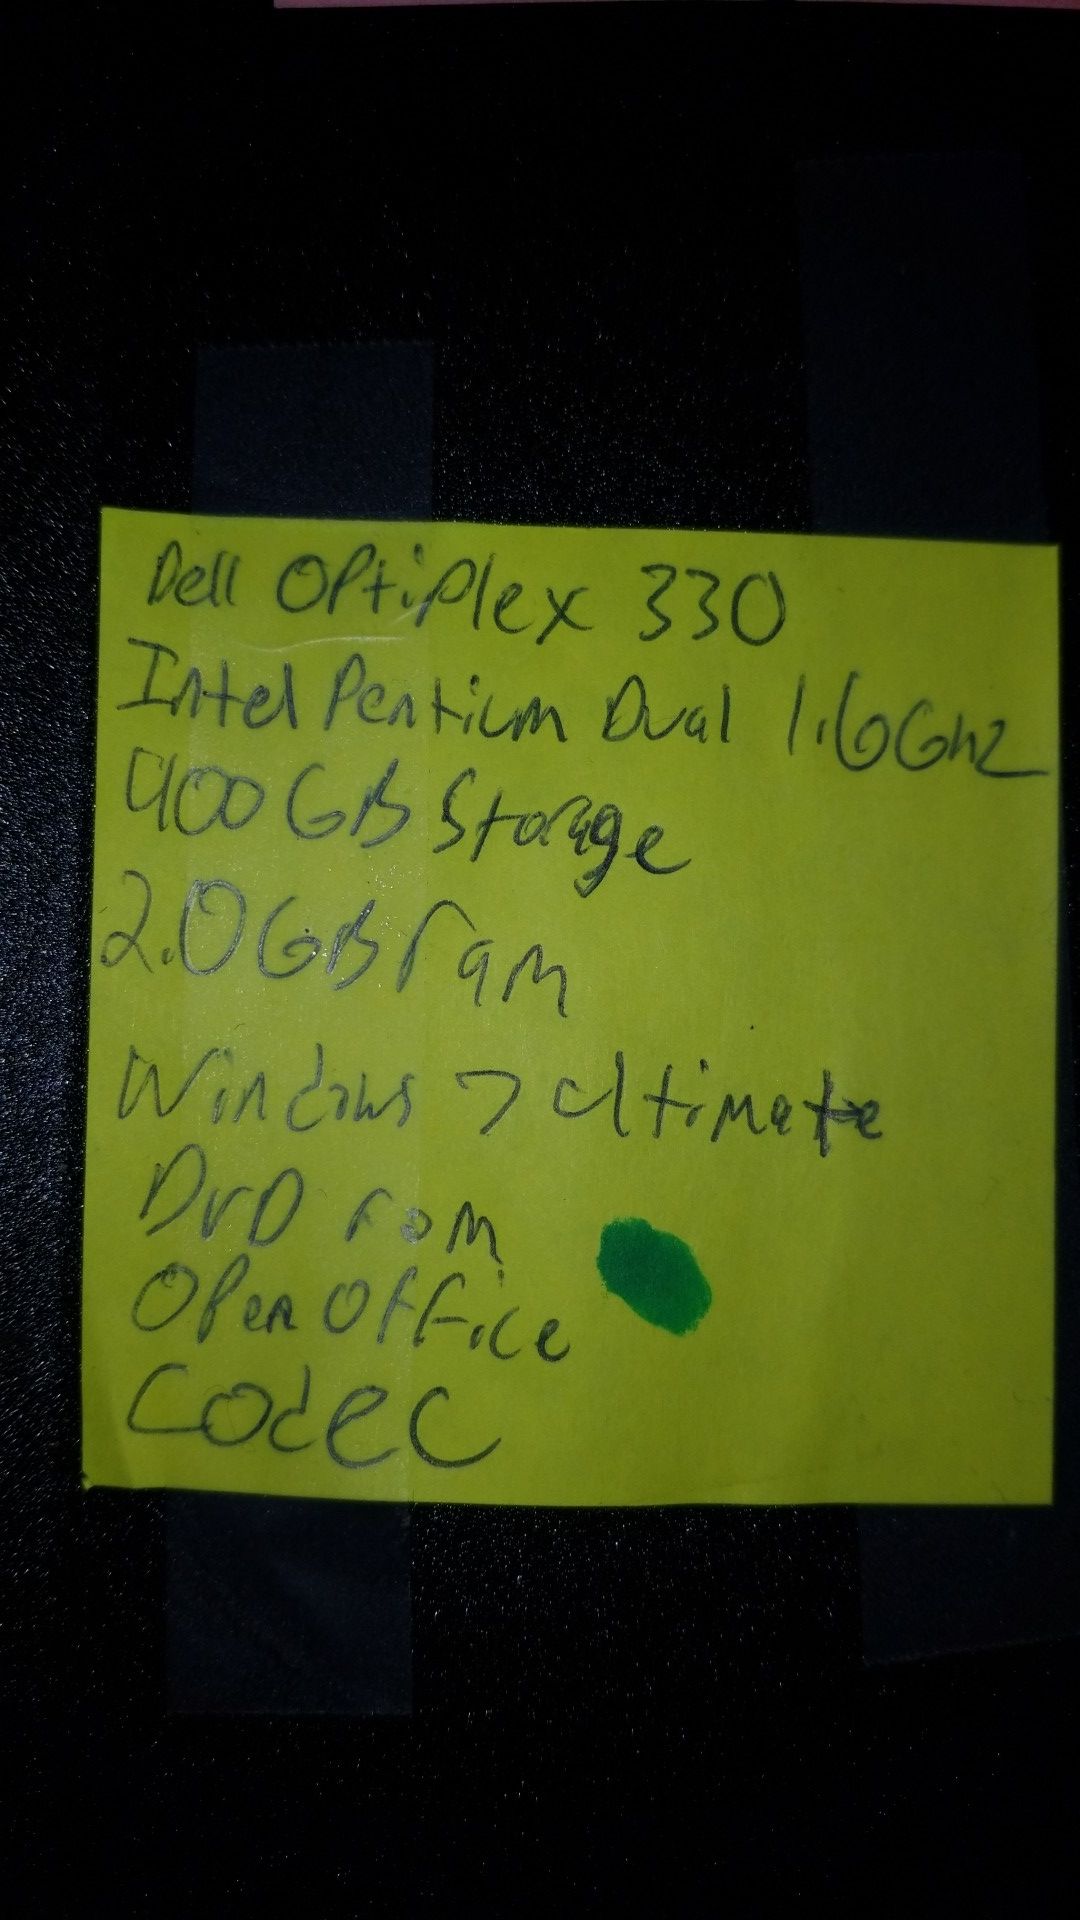 Dell OptiPlex 330
Intel Pentium Dual 1.6 Ghz
400 GB Storage
2.0 GB ram
Windows 7 ultimate
DVD rom
Open Office
Codec